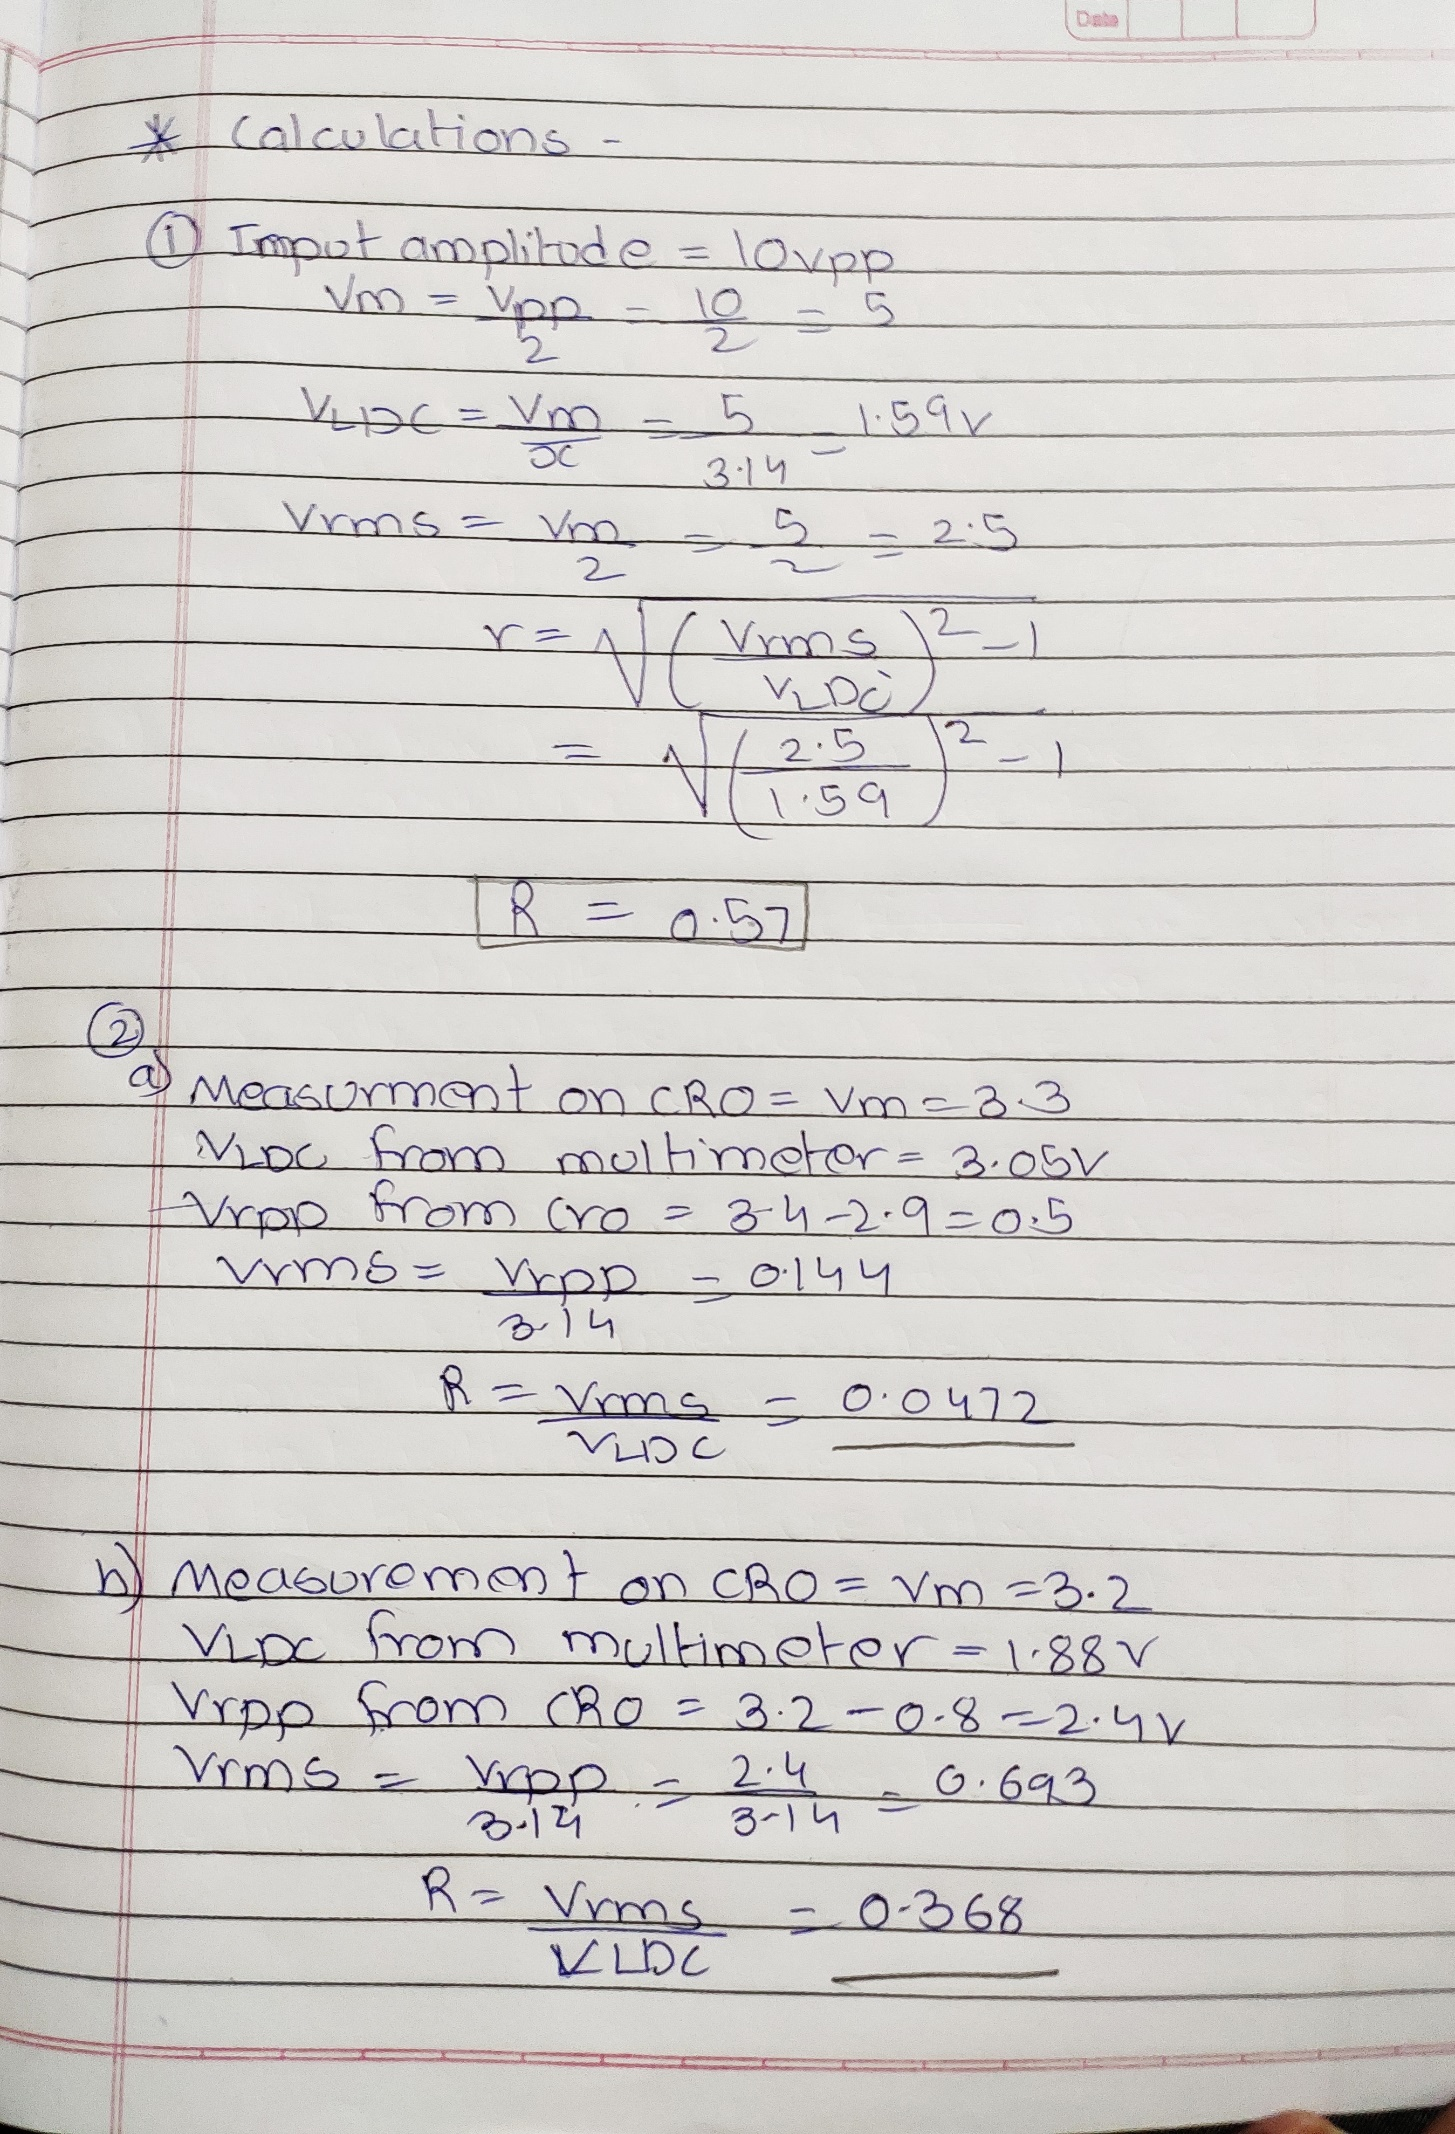 Date
* Calculations -
① Imput amplitude = 10vpp
Vm = Vpp/2 = 10/2 = 5
VLDC = Vm/π = 5/3.14 = 1.59v
Vrms = Vm/2 = 5/2 = 2.5
r = √(Vrms/VLDC)² - 1
= √(2.5/1.59)² - 1
R = 0.57
②
a) Measurment on CRO = Vm = 3.3
VLDC from multimeter = 3.05V
Vrpp from cro = 3.4 - 2.9 = 0.5
Vrms = Vrpp/3.14 = 0.144
R = Vrms/VLDC = 0.0472
b) Measurement on CRO = Vm = 3.2
VLDC from multimeter = 1.88V
Vrpp from CRO = 3.2 - 0.8 = 2.4V
Vrms = Vrpp/3.14 = 2.4/3.14 = 0.693
R = Vrms/VLDC = 0.368